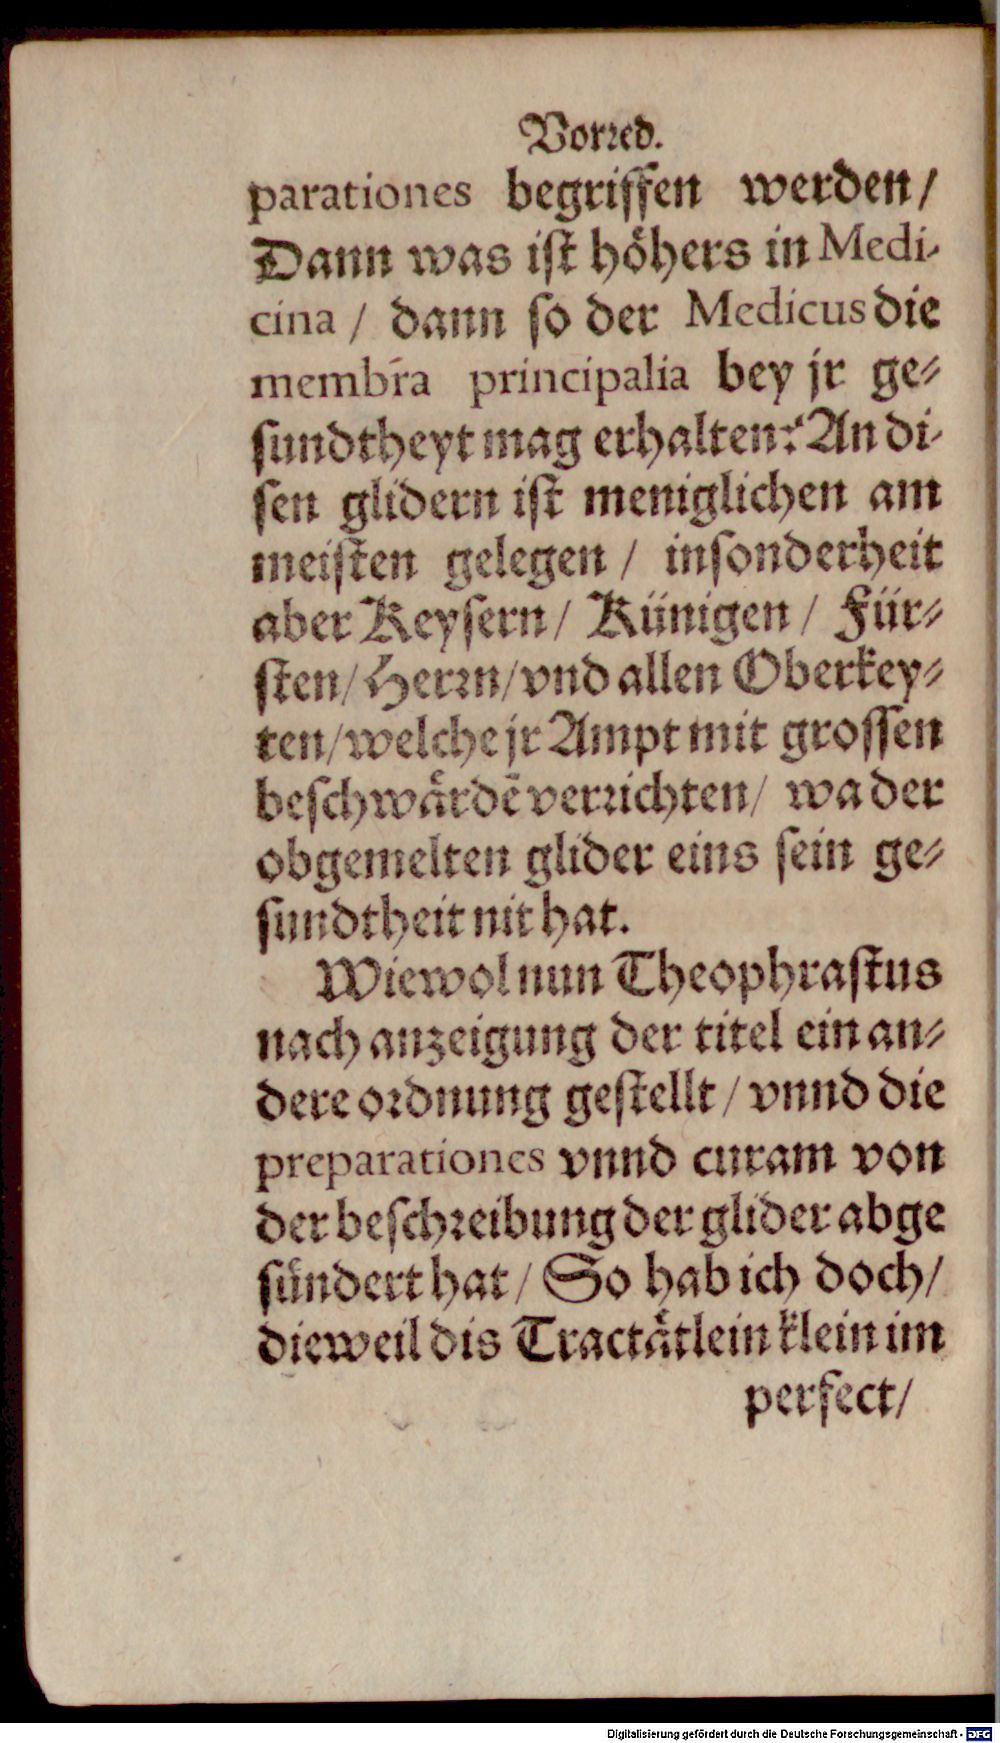 Vorꝛed.
parationes begriffen werden/
Dann was iſt höhers in Medi-
cina / dann ſo der Medicus die
membra principalia bey jr ge-
ſundtheyt mag erhalten? An di-
ſen glidern iſt meniglichen am
meiſten gelegen / inſonderheit
aber Keyſern/ Künigen / Für-
ſten/ Herꝛn/ vnd allen Oberkey-
ten/ welche jr Ampt mit groſſen
beſchwärdē verꝛichten/ wa der
obgemelten glider eins ſein ge-
ſundtheit nit hat.
Wiewol nun Theophraſtus
nach anzeigung der titel ein an-
dere oꝛdnung geſtellt / vnnd die
preparationes vnnd curam von
der beſchꝛeibung der glider abge
ſündert hat/ So hab ich doch/
dieweil dis Tractätlein klein im
perfect/
Digitalisierung gefördert durch die Deutsche Forschungsgemeinschaft - DFG